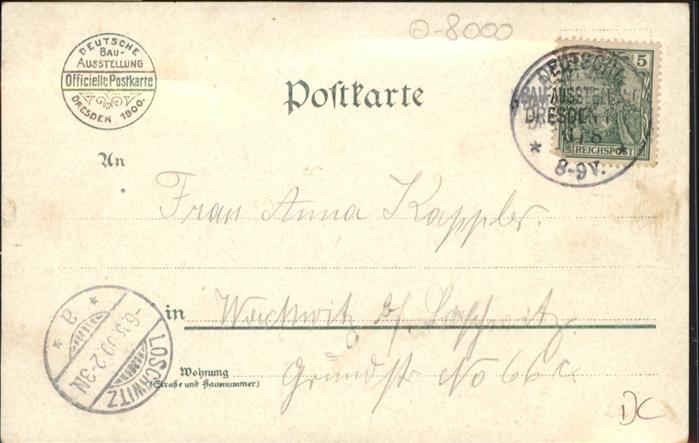 O-8000
DEUTSCHE
BAU-
AUSSTELLUNG
Officielle Postkarte
DRESDEN 1900.
5
REICHSPOST
DEUTSCHE
BAU-AUSSTELLUNG
DRESDEN
* 8-9V. *
Postkarte
An
Frau Anna Kappler.
in Wachwitz b/ Loschwitz
Wohnung
(Straße und Hausnummer)
Grundstr No 66 c.
* a *
2-3N
LOSCHWITZ